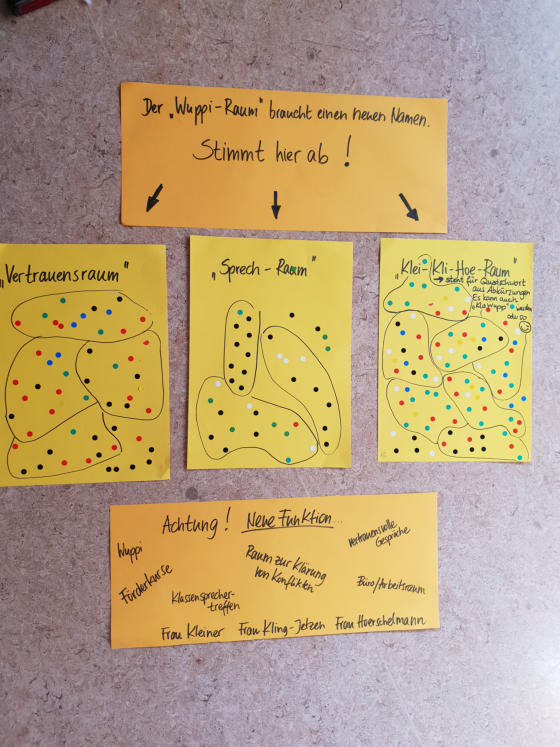 Der „Wuppi-Raum" braucht einen neuen Namen.
Stimmt hier ab!
„Vertrauensraum"
„Sprech-Raum"
„Klei-Kli-Hoe-Raum"
→ steht für Quatschwort
aus Abkürzungen
Es kann auch
"KloWupp" werden
oder so
Achtung! Neue Funktion...
Wuppi
Förderkurse
Klassensprecher-
treffen
Raum zur Klärung
von Konflikten
Vertrauensvolle
Gespräche
Büro/Arbeitsraum
Frau Kleiner Frau Kling-Jetzen Frau Hoerschelmann